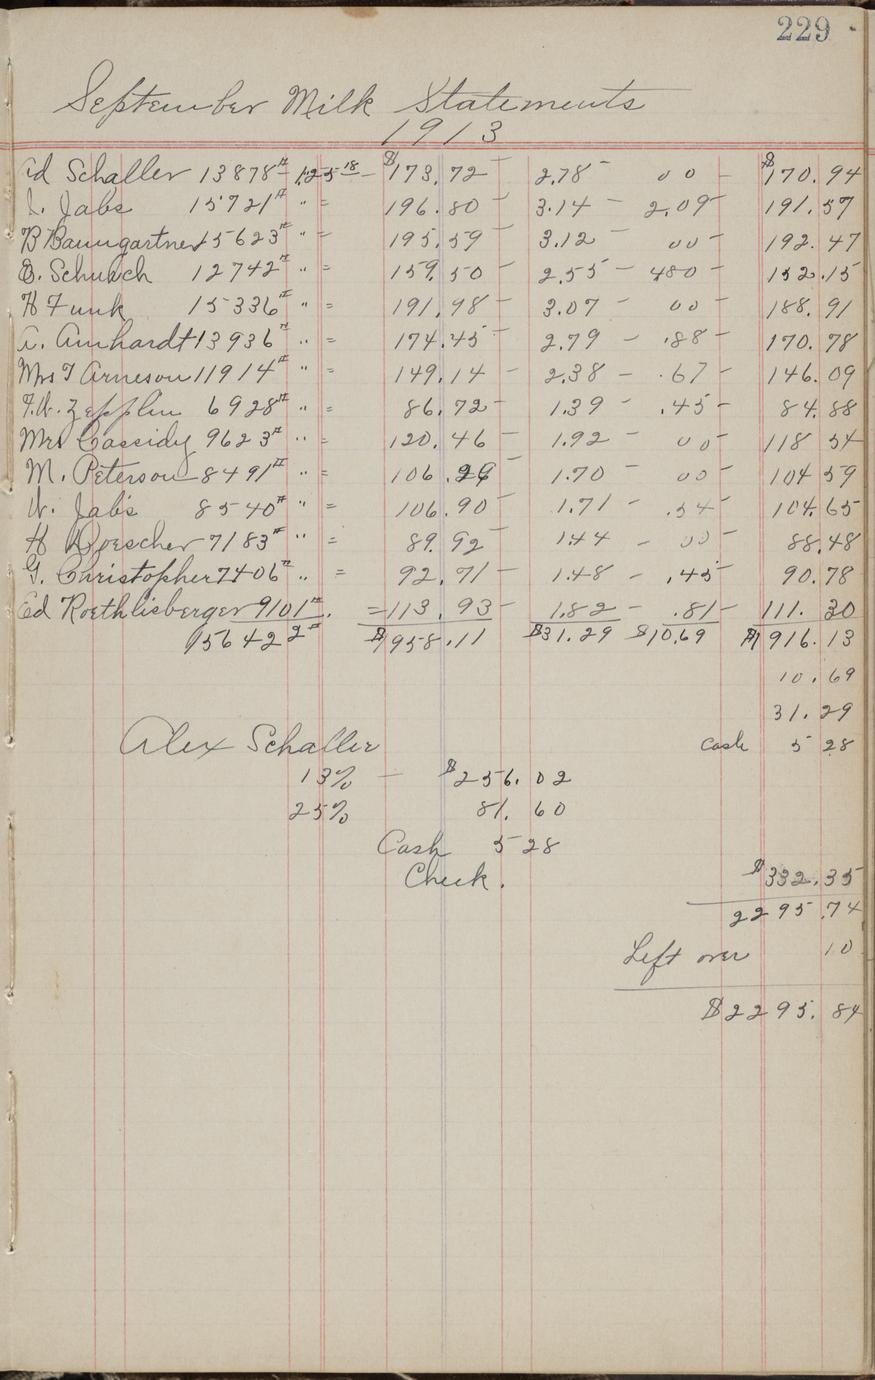 229
September Milk Statements
1913
Ed Schaller 13878# 1.25 18 — $173.72 — 2.78 — 00 — $170.94
J. Jabs 15721# " = 196.80 — 3.14 — 2.09 — 191.57
B Baumgartner 15623# " = 195.59 — 3.12 — 00 — 192.47
E. Schubch 12742# " = 159.50 — 2.55 — 480 — 152.15
H Funk 15336# " = 191.98 — 3.07 — 00 — 188.91
A. Amhardt 13936# " = 174.45 — 2.79 — .88 — 170.78
Mrs T Arneson 11914# " = 149.14 — 2.38 — .67 — 146.09
F.W. Zepplin 6928# " = 86.72 — 1.39 — .45 — 84.88
Mrs Cassidy 9623# " = 120.46 — 1.92 — 00 — 118 54
M. Peterson 8491# " = 106.29 — 1.70 — 00 — 104 59
W. Jabs 8540# " = 106.90 — 1.71 — .54 — 104.65
H Roescher 7183# " = 89.92 — 1.44 — 00 — 88.48
G. Christopher 7406# " = 92.71 — 1.48 — .45 — 90.78
Ed Roethlisberger 9101#. = 113.93 — 1.82 — .81 — 111.30
156422# $1958.11 $31.29 $10.69 $1916.13
10.69
31.29
Alex Schaller Cash 5 28
13% — $256.02
25% 81.60
Cash 5 28
Check. $332.35
2295.74
Left over 10
$2295.84